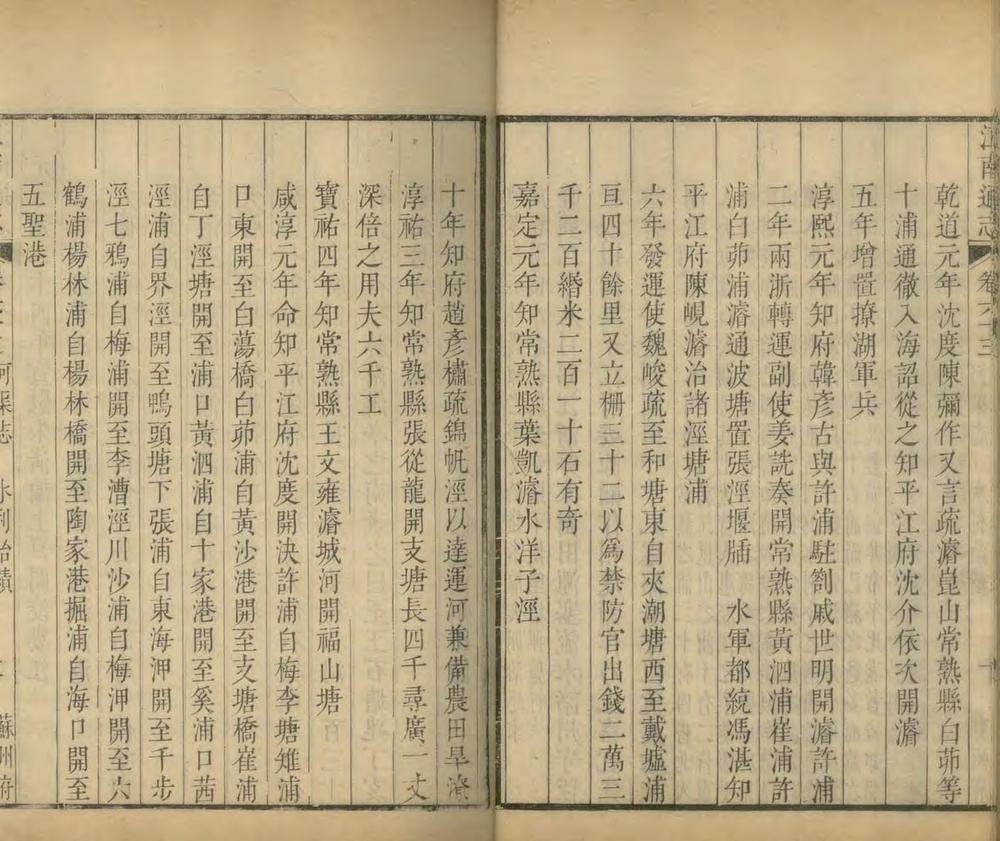 江南通志 卷六十三
乾道元年沈度陳彌作又言疏濬崑山常熟縣白茆等
十浦通徹入海詔從之知平江府沈介依次開濬
五年增置撩湖軍兵
淳熙元年知府韓彥古與許浦駐劄戚世明開濬許浦
二年兩浙轉運副使姜詵奏開常熟縣黃泗浦崔浦許
浦白茆浦濬通波塘置張涇堰牐 水軍都統馮湛知
平江府陳峴濬治諸涇塘浦
六年發運使魏峻疏至和塘東自夾潮塘西至戴墟浦
亘四十餘里又立柵三十二以爲禁防官出錢二萬三
千二百緡米二百一十石有奇
嘉定元年知常熟縣葉凱濬水洋子涇
十年知府趙彥橚疏錦帆涇以達運河兼備農田旱潦
淳祐三年知常熟縣張從龍開支塘長四千尋廣一丈
深倍之用夫六千工
寶祐四年知常熟縣王文雍濬城河開福山塘
咸淳元年命知平江府沈度開決許浦自梅李塘雉浦
口東開至白蕩橋白茆浦自黃沙港開至支塘橋崔浦
自丁涇塘開至浦口黃泗浦自十家港開至奚浦口茜
涇浦自界涇開至鴨頭塘下張浦自東海浦開至千步
涇七鴉浦自梅浦開至李漕涇川沙浦自梅浦開至六
鶴浦楊林浦自楊林橋開至陶家港掘浦自海口開至
五聖港
河渠志 水利治績 蘇州府